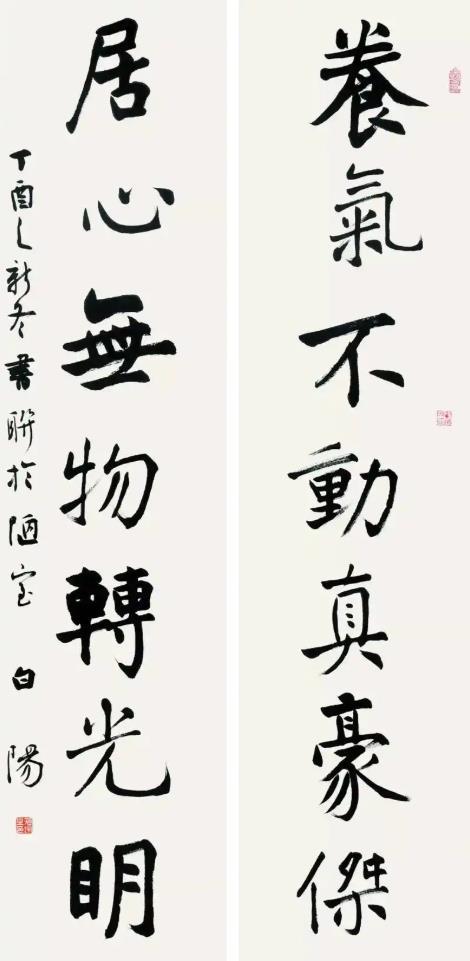 養氣不動真豪傑
居心無物轉光明
丁酉之新冬書聯於陋室 白陽